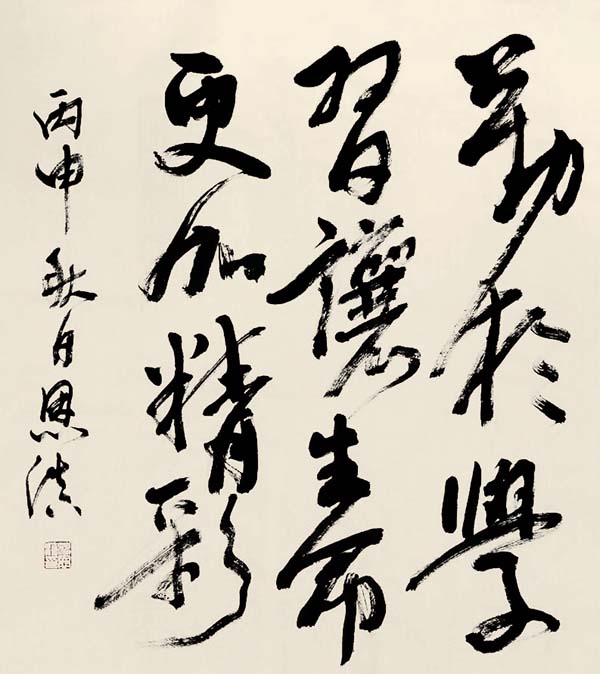 勤於學
習讓生命
更加精彩
丙申秋日恩滨